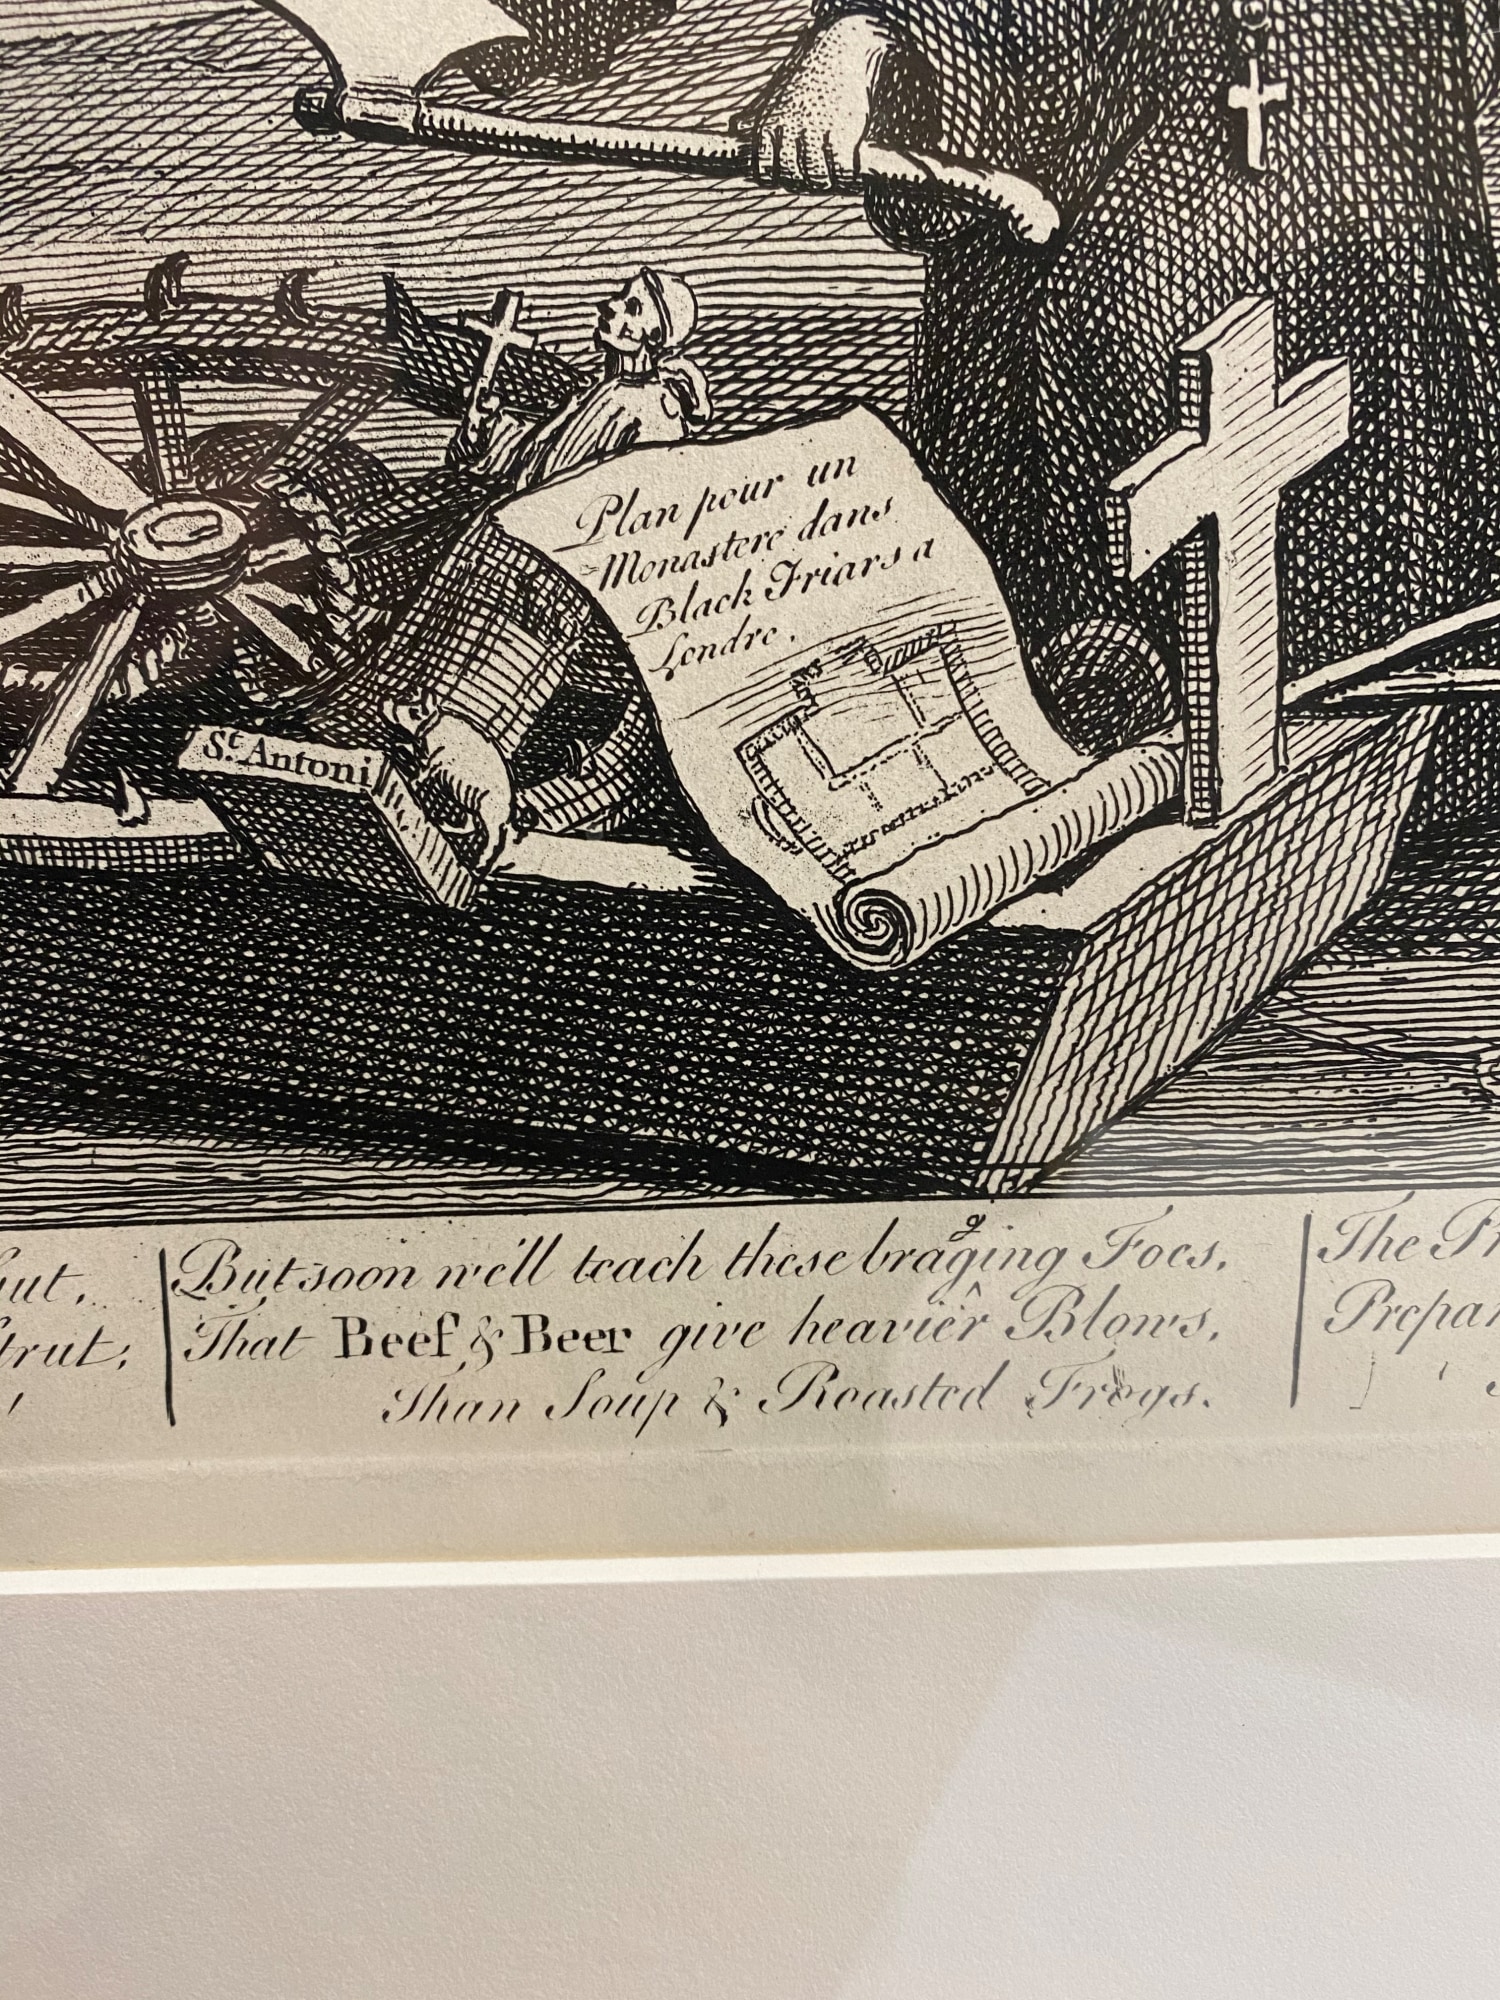 Plan pour un
Monastere dans
Black Friars a
Londre.
St. Antoni
But soon we'll teach these bragging Foes,
That Beef & Beer give heavier Blows,
Than Soup & Roasted Frogs.
trut,
The